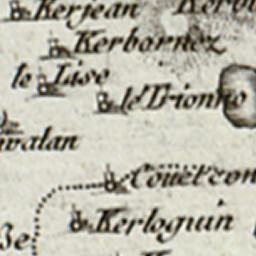 Kerjean
Kerbornez
le Lise
le Trionno
walan
Couetcon
Kerloguin